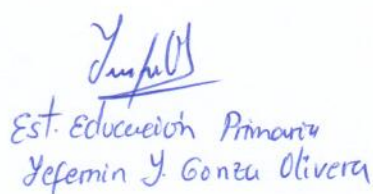 Est. Educación Primaria
Yefemin Y. Gonza Olivera